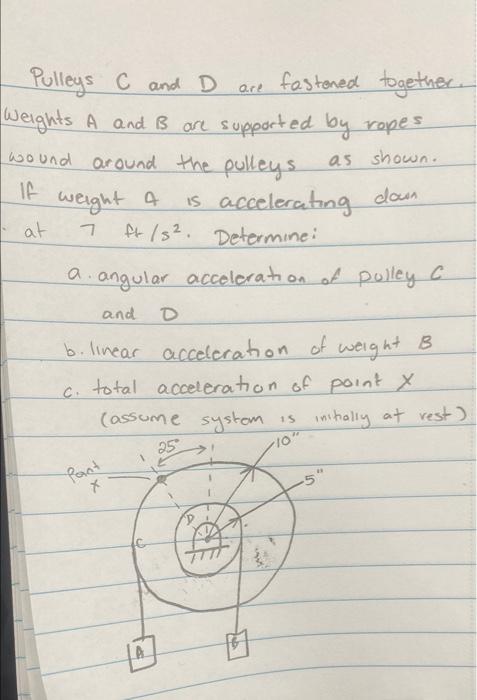 Pulleys C and D are fastened together.
Weights A and B are supported by ropes
wound around the pulleys as shown.
If weight A is accelerating down
at 7 ft/s². Determine:
a. angular acceleration of pulley C
and D
b. linear acceleration of weight B
c. total acceleration of point X
(assume system is initially at rest)
25°
10"
Point
X
5"
D
C
A
B